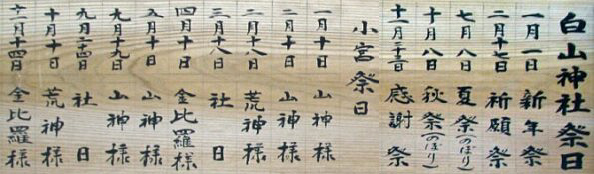 白山神社祭日
一月一日 新年祭
二月十七日 祈願祭
七月八日 夏祭(のぼり)
十月八日 秋祭(のぼり)
十一月二十三日 感謝祭
小宮祭日
一月十日 山神様
二月十日 山神様
二月十八日 荒神様
三月十八日 社日
四月十日 金比羅様
五月十日 山神様
九月十九日 山神様
九月二十四日 社日
十月十日 荒神様
十二月十四日 金比羅様